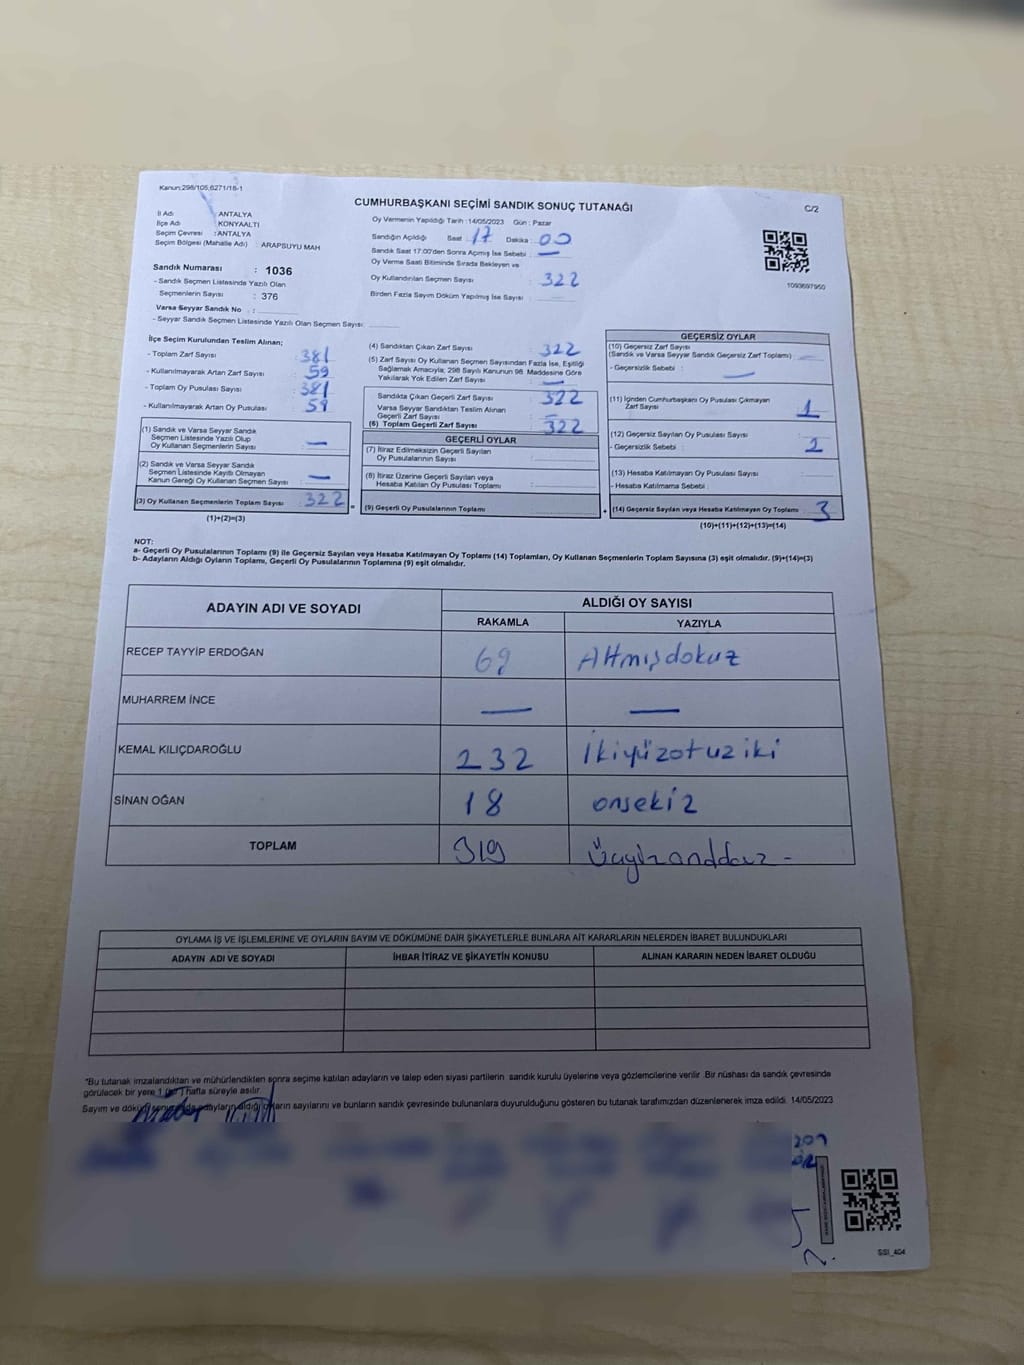 Kanun:298/105,6271/18-1
CUMHURBAŞKANI SEÇİMİ SANDIK SONUÇ TUTANAĞI
C/2
İl Adı : ANTALYA
İlçe Adı : KONYAALTI
Seçim Çevresi : ANTALYA
Seçim Bölgesi (Mahalle Adı) : ARAPSUYU MAH
Oy Vermenin Yapıldığı Tarih : 14/05/2023 Gün : Pazar
Sandığın Açıldığı Saat : 17 Dakika : 00
Sandık Saat 17:00'den Sonra Açmış İse Sebebi : —
Oy Verme Saati Bitiminde Sırada Bekleyen ve
Oy Kullandırılan Seçmen Sayısı : 322
Birden Fazla Sayım Döküm Yapılmış İse Sayısı :
1093697950
Sandık Numarası : 1036
- Sandık Seçmen Listesinde Yazılı Olan
Seçmenlerin Sayısı : 376
Varsa Seyyar Sandık No :
- Seyyar Sandık Seçmen Listesinde Yazılı Olan Seçmen Sayısı :
İlçe Seçim Kurulundan Teslim Alınan;
- Toplam Zarf Sayısı : 381
- Kullanılmayarak Artan Zarf Sayısı : 59
- Toplam Oy Pusulası Sayısı : 381
- Kullanılmayarak Artan Oy Pusulası : 59
(1) Sandık ve Varsa Seyyar Sandık
Seçmen Listesinde Yazılı Olup
Oy Kullanan Seçmenlerin Sayısı : —
(2) Sandık ve Varsa Seyyar Sandık
Seçmen Listesinde Kayıtlı Olmayan
Kanun Gereği Oy Kullanan Seçmen Sayısı : —
(3) Oy Kullanan Seçmenlerin Toplam Sayısı : 322
(1)+(2)=(3)
(4) Sandıktan Çıkan Zarf Sayısı : 322
(5) Zarf Sayısı Oy Kullanan Seçmen Sayısından Fazla İse, Eşitliği
Sağlamak Amacıyla; 298 Sayılı Kanunun 98. Maddesine Göre
Yakılarak Yok Edilen Zarf Sayısı : —
Sandıkta Çıkan Geçerli Zarf Sayısı : 322
Varsa Seyyar Sandıktan Teslim Alınan
Geçerli Zarf Sayısı : —
(6) Toplam Geçerli Zarf Sayısı : 322
GEÇERLİ OYLAR
(7) İtiraz Edilmeksizin Geçerli Sayılan
Oy Pusulalarının Sayısı :
(8) İtiraz Üzerine Geçerli Sayılan veya
Hesaba Katılan Oy Pusulası Toplamı :
= (9) Geçerli Oy Pusulalarının Toplamı :
GEÇERSİZ OYLAR
(10) Geçersiz Zarf Sayısı
(Sandık ve Varsa Seyyar Sandık Geçersiz Zarf Toplamı) :
- Geçersizlik Sebebi : —
(11) İçinden Cumhurbaşkanı Oy Pusulası Çıkmayan
Zarf Sayısı : 1
(12) Geçersiz Sayılan Oy Pusulası Sayısı :
- Geçersizlik Sebebi : 2
(13) Hesaba Katılmayan Oy Pusulası Sayısı :
- Hesaba Katılmama Sebebi :
+ (14) Geçersiz Sayılan veya Hesaba Katılmayan Oy Toplamı : 3
(10)+(11)+(12)+(13)=(14)
NOT:
a- Geçerli Oy Pusulalarının Toplamı (9) ile Geçersiz Sayılan veya Hesaba Katılmayan Oy Toplamı (14) Toplamları, Oy Kullanan Seçmenlerin Toplam Sayısına (3) eşit olmalıdır. (9)+(14)=(3)
b- Adayların Aldığı Oyların Toplamı, Geçerli Oy Pusulalarının Toplamına (9) eşit olmalıdır.
ADAYIN ADI VE SOYADI
ALDIĞI OY SAYISI
RAKAMLA YAZIYLA
RECEP TAYYİP ERDOĞAN 69 Altmışdokuz
MUHARREM İNCE — —
KEMAL KILIÇDAROĞLU 232 İkiyüzotuziki
SİNAN OĞAN 18 onsekiz
TOPLAM 319
OYLAMA İŞ VE İŞLEMLERİNE VE OYLARIN SAYIM VE DÖKÜMÜNE DAİR ŞİKAYETLERLE BUNLARA AİT KARARLARIN NELERDEN İBARET BULUNDUKLARI
ADAYIN ADI VE SOYADI İHBAR İTİRAZ VE ŞİKAYETİN KONUSU ALINAN KARARIN NEDEN İBARET OLDUĞU
*Bu tutanak imzalandıktan ve mühürlendikten sonra seçime katılan adayların ve talep eden siyasi partilerin sandık kurulu üyelerine veya gözlemcilerine verilir. Bir nüshası da sandık çevresinde
görülecek bir yere 1 hafta süreyle asılır.
Sayım ve döküm adayların aldığı oyların sayılarını ve bunların sandık çevresinde bulunanlara duyurulduğunu gösteren bu tutanak tarafımızdan düzenlenerek imza edildi. 14/05/2023
SSI_404